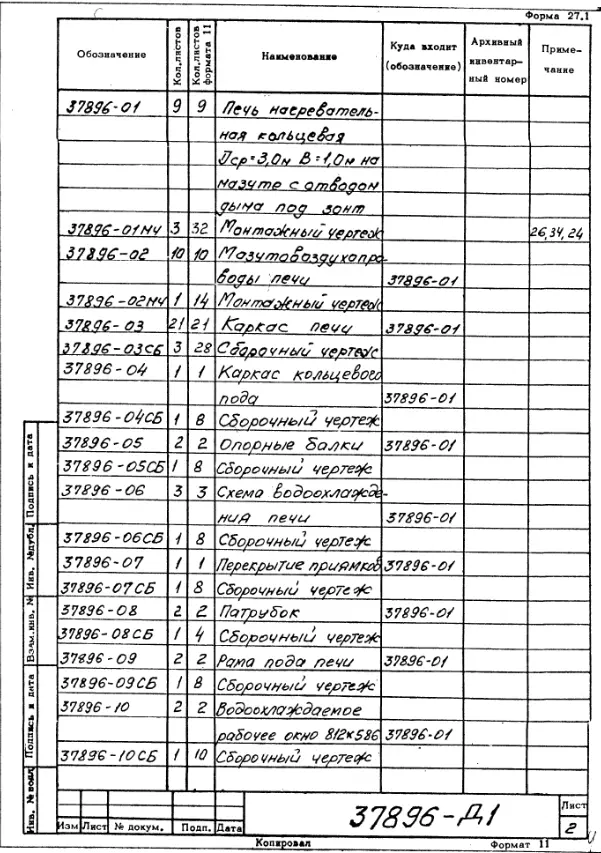 Форма 27.1
Обозначение Кол.листов Кол.листов формата 11 Наименование Куда входит (обозначение) Архивный инвентар-ный номер Приме-чание
37896-01 9 9 Печь нагреватель-
ная кольцевая
Dср=3,0м В=1,0м на
мазуте с отводом
дыма под зонт
37896-01МЧ 3 32 Монтажный чертеж 26,34,24
37896-02 10 10 Мазутовоздухопро-
воды печи 37896-01
37896-02МЧ 1 14 Монтажный чертеж
37896-03 21 21 Каркас печи 37896-01
37896-03СБ 3 28 Сборочный чертеж
37896-04 1 1 Каркас кольцевого
пода 37896-01
37896-04СБ 1 8 Сборочный чертеж
37896-05 2 2 Опорные балки 37896-01
37896-05СБ 1 8 Сборочный чертеж
37896-06 3 3 Схема водоохлажде-
ния печи 37896-01
37896-06СБ 1 8 Сборочный чертеж
37896-07 1 1 Перекрытие приямков 37896-01
37896-07СБ 1 8 Сборочный чертеж
37896-08 2 2 Патрубок 37896-01
37896-08СБ 1 4 Сборочный чертеж
37896-09 2 2 Рама пода печи 37896-01
37896-09СБ 1 8 Сборочный чертеж
37896-10 2 2 Водоохлаждаемое
рабочее окно 812×586 37896-01
37896-10СБ 1 10 Сборочный чертеж
Подпись и дата
Инв. №дубл.
Взам.инв. №
Подпись и дата
Инв. № подл.
Изм Лист № докум. Подп. Дата
37896-Д1
Лист
2
Копировал Формат 11